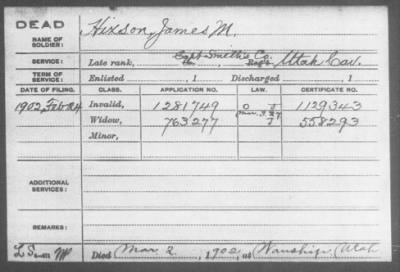 DEAD
NAME OF SOLDIER: Hixson, James M.
SERVICE: Late rank, Capt Smith's Co. Reg't Utah Cav.
TERM OF SERVICE: Enlisted , 1 Discharged , 1
DATE OF FILING. CLASS. APPLICATION NO. LAW. CERTIFICATE NO.
1902, Feb Invalid, 1281749 1129343
Widow, 763277 558293
Minor,
ADDITIONAL SERVICES:
REMARKS:
Died Mar 2, 1902, at Wanship, Utah